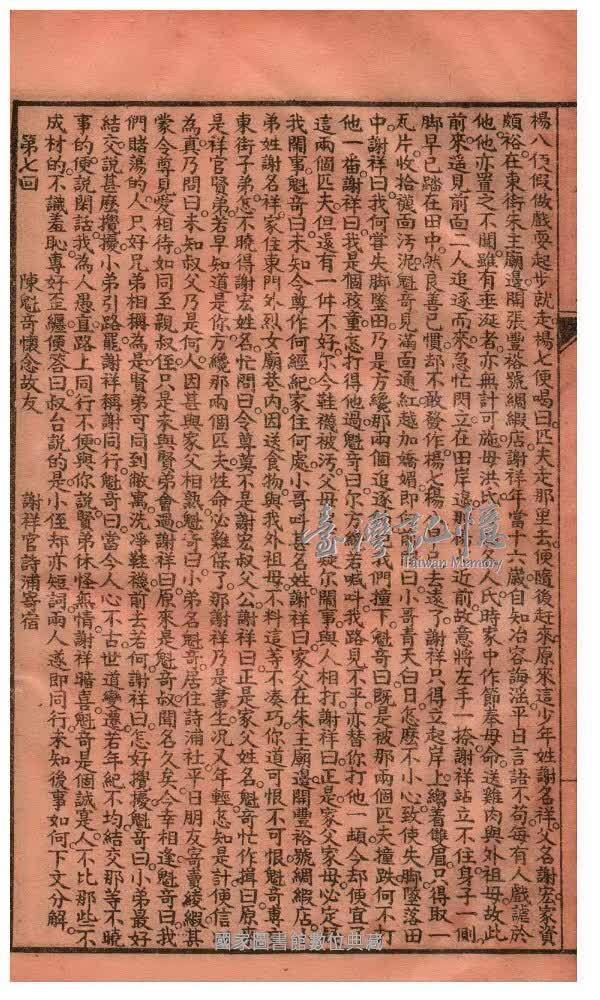 楊八伍假做戲耍起步就走楊七便喝曰匹夫走那里去便隨後赶來原來這少年姓謝名祥父名謝宏家資
頗裕在東街朱王廟邊開張豐裕號綢緞店謝祥年當十六歲自知冶容誨淫平日言語不苟每有人戲謔於
他他亦置之不聞雖有垂涎者亦無計可施母洪氏
人氏時家中作節奉母命送雞肉與外祖母故此
前來遥見前面二人追逐而來急忙閃立在田岸邊那
近前故意將左手一捺謝祥站立不住身子一側
脚早已踏在田中
良善已慣却不敢發作楊七楊
去遠了謝祥只得立起岸上縐着雙眉只得取一
瓦片收拾襪面污泥魁竒見滿面通紅越加嬌媚即向前曰小哥青天白日怎麽不小心致使失脚墜落田
中謝祥曰我何嘗失脚墜田乃是方纔那兩個追逐
把我們撞下魁竒曰既是被那兩個匹夫撞跌何不打
他一番謝祥曰我是個孩童怎打得他過魁竒曰尔方纔若喊呌我路見不平亦替你打他一頓今却便宜了
這兩個匹夫但還有一件不好尔今鞋襪被汚父母
疑尔鬧事與人相打謝祥曰正是家父家母必定疑
我鬧事魁竒曰未知令尊作何經紀家住何處小哥呌甚名姓謝祥曰家父在朱王廟邊開豐裕號綢緞店
弟姓謝名祥家住東門外烈女廟巷內因送食物與我外祖母不料這等不凑巧你道可恨不可恨魁竒專
東街子弟怎不曉得謝宏姓名忙問曰令尊莫不是謝宏叔父么謝祥曰正是家父姓名魁竒忙作揖曰原來
是祥官賢弟若早知道是你方纔那兩個匹夫性命必難保了那謝祥乃是書生况又年輕怎知是計便信
為真乃問曰未知叔父乃是何人因甚與家父相熟魁竒曰小弟名魁竒居住詩浦社平日朋友竒賣綾緞甚
蒙令尊見愛相待如同至親叔侄只是未與賢弟會過謝祥曰原來是魁竒叔聞名久矣今幸相逢魁竒曰我
們賭蕩的人只好兄弟相稱為是賢弟可同到敝寓洗淨鞋襪前去若何謝祥曰怎好攪擾魁竒曰小弟最好
結交說甚麽攪擾小弟引路罷謝祥稱謝同行魁竒曰當今人心不古世道變遷若年紀不均結交那等不曉
事的便說閑話我為人愚直路上同行不便與你說賢弟休怪無情謝祥暗喜魁竒是個誠寔人不比那些不
成材的不識羞恥專好歪纏便答曰叔台說的是小侄却亦短詞兩人遂即同行未知後事如何下文分解
第七回　陳魁竒懷念故友　謝祥官詩浦寄宿
臺灣記憶
Taiwan Memory
國家圖書館數位典藏